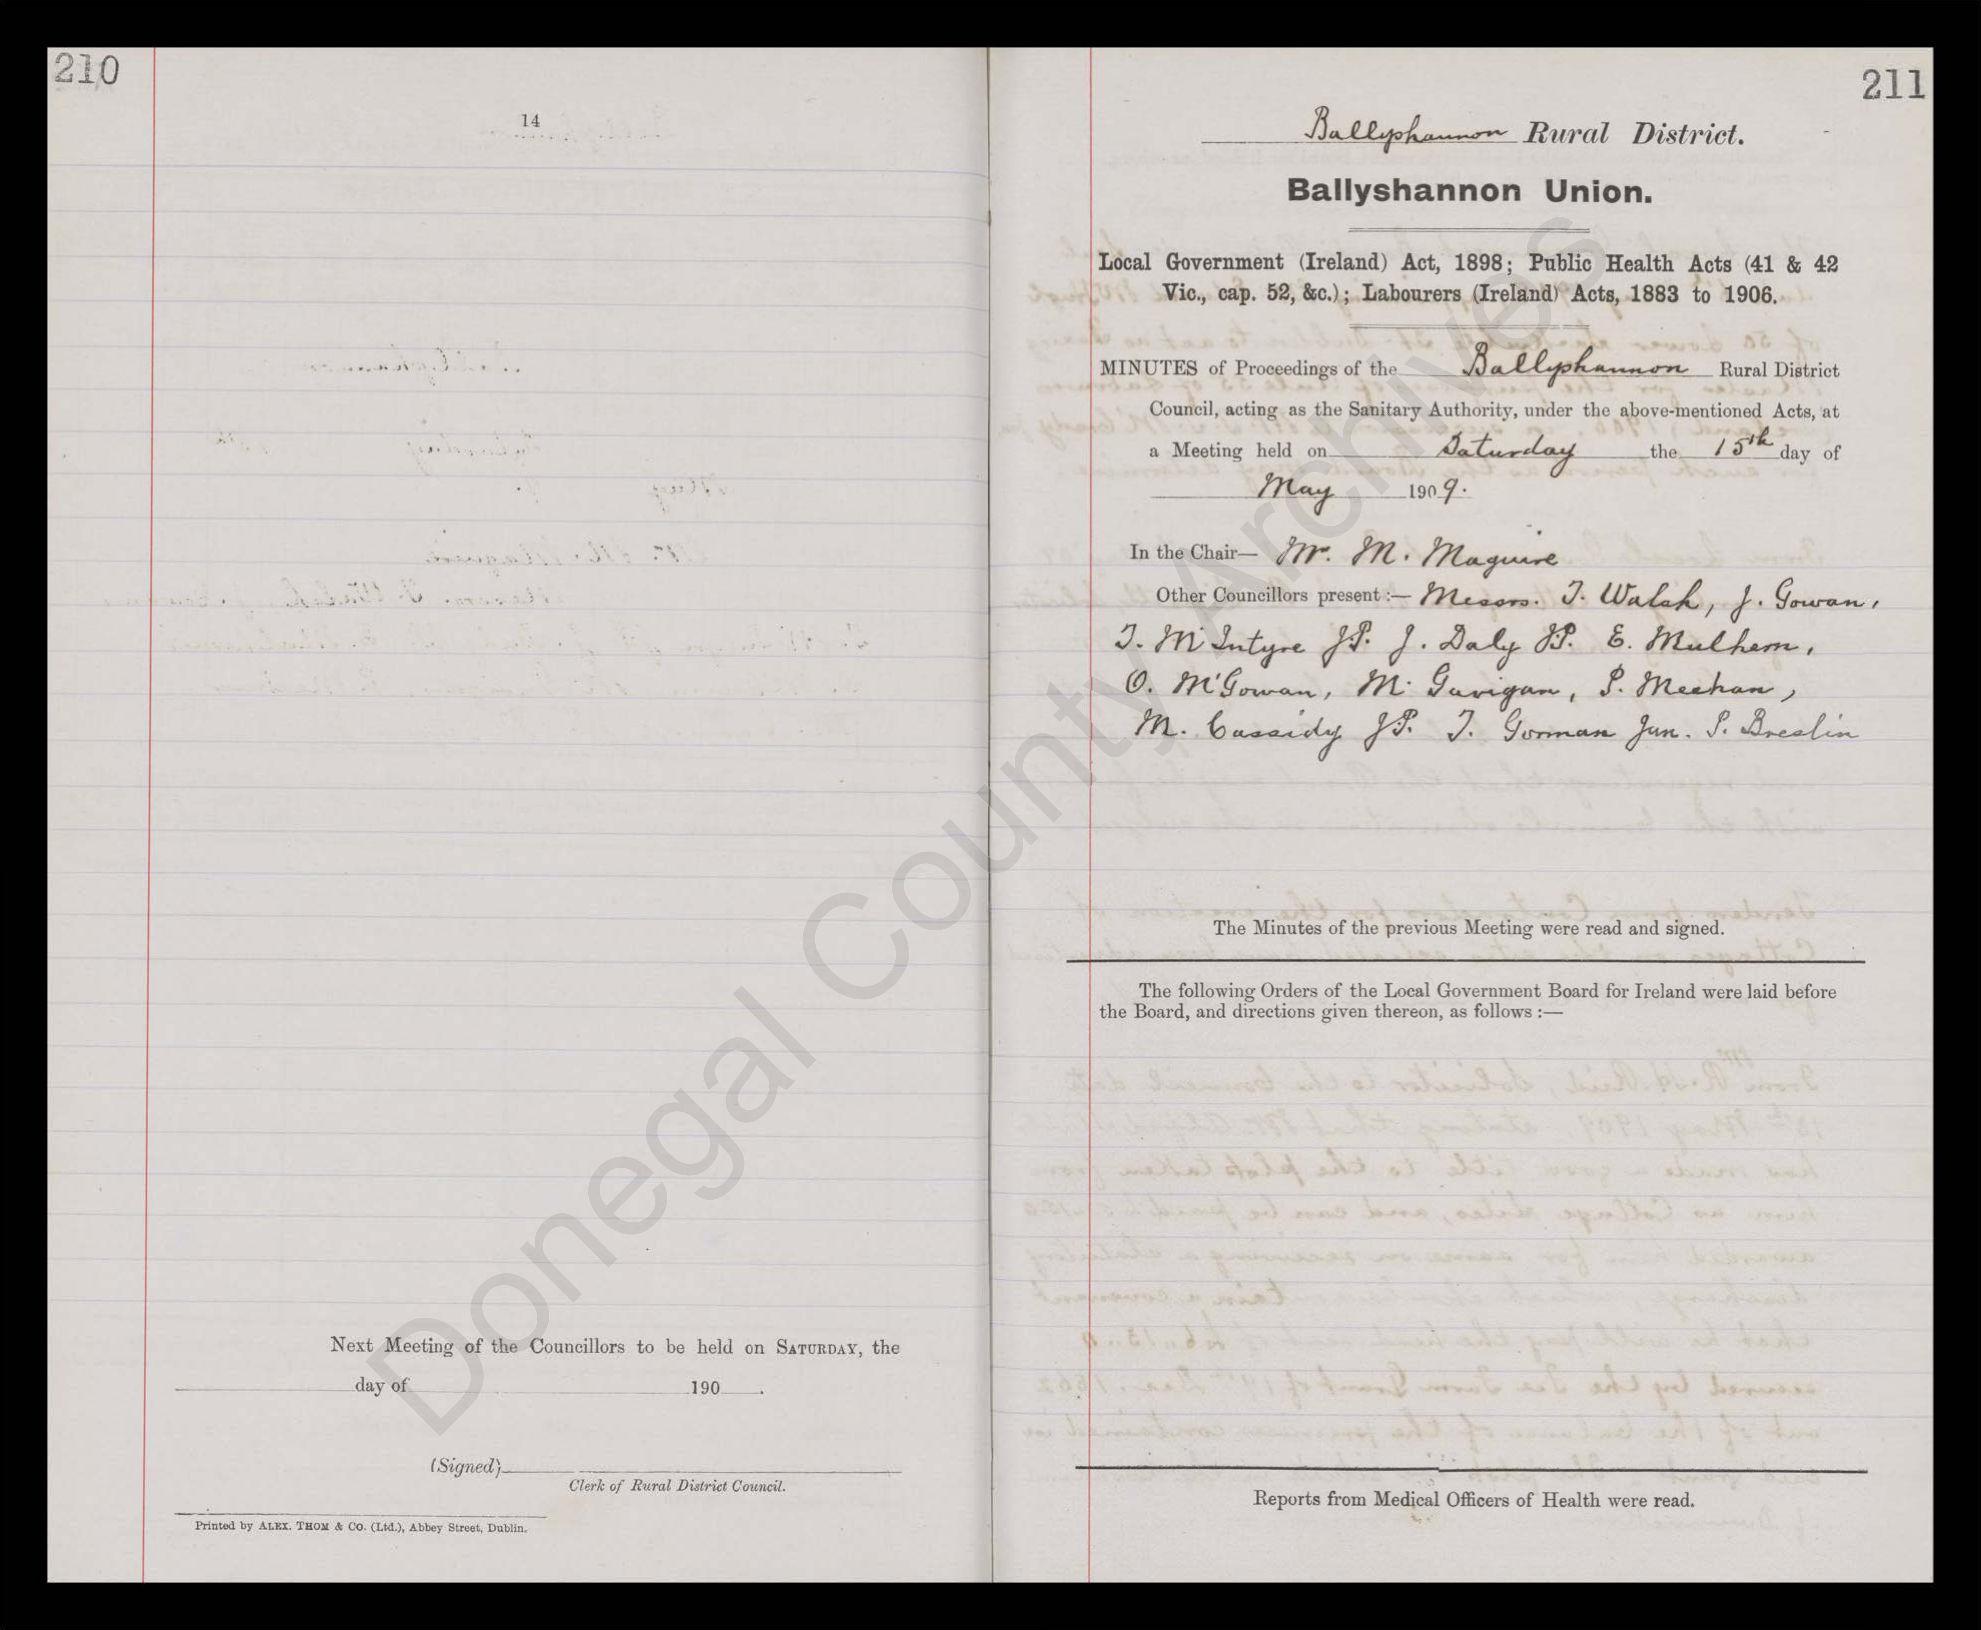 210
14
Next Meeting of the Councillors to be held on SATURDAY, the
day of 190 .
(Signed)
Clerk of Rural District Council.
Printed by ALEX. THOM & CO. (Ltd.), Abbey Street, Dublin.
211
Ballyshannon Rural District.
Ballyshannon Union.
Local Government (Ireland) Act, 1898; Public Health Acts (41 & 42
Vic., cap. 52, &c.); Labourers (Ireland) Acts, 1883 to 1906.
MINUTES of Proceedings of the Ballyshannon Rural District
Council, acting as the Sanitary Authority, under the above-mentioned Acts, at
a Meeting held on Saturday the 15th day of
May 1909.
In the Chair— Mr. M. Maguire
Other Councillors present :— Messrs. T. Walsh, J. Gowan,
T. McIntyre J.P. J. Daly J.P. E. Mulhern,
O. McGowan, M. Gavigan, P. Meehan,
M. Cassidy J.P. T. Gorman Jun. P. Breslin
The Minutes of the previous Meeting were read and signed.
The following Orders of the Local Government Board for Ireland were laid before
the Board, and directions given thereon, as follows :—
Reports from Medical Officers of Health were read.
Donegal County Archives